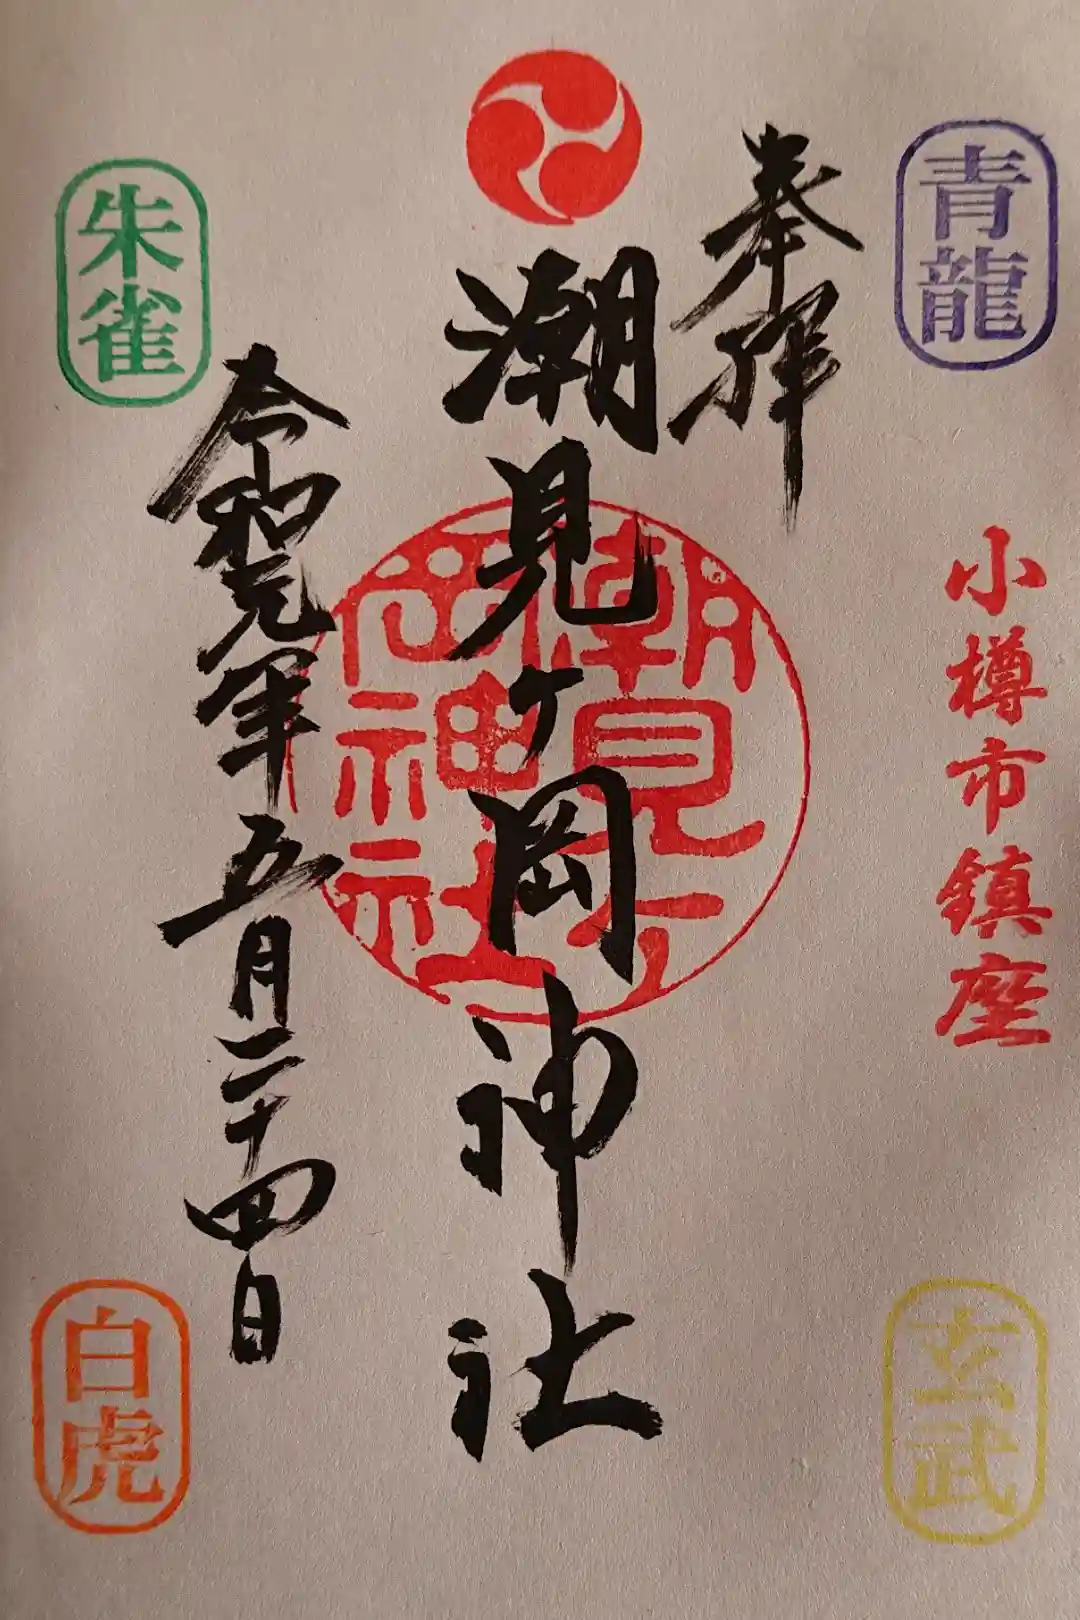 青龍
奉拝
小樽市鎮座
潮見ヶ岡神社
潮見ヶ
岡神社
朱雀
令和元年五月二十四日
玄武
白虎